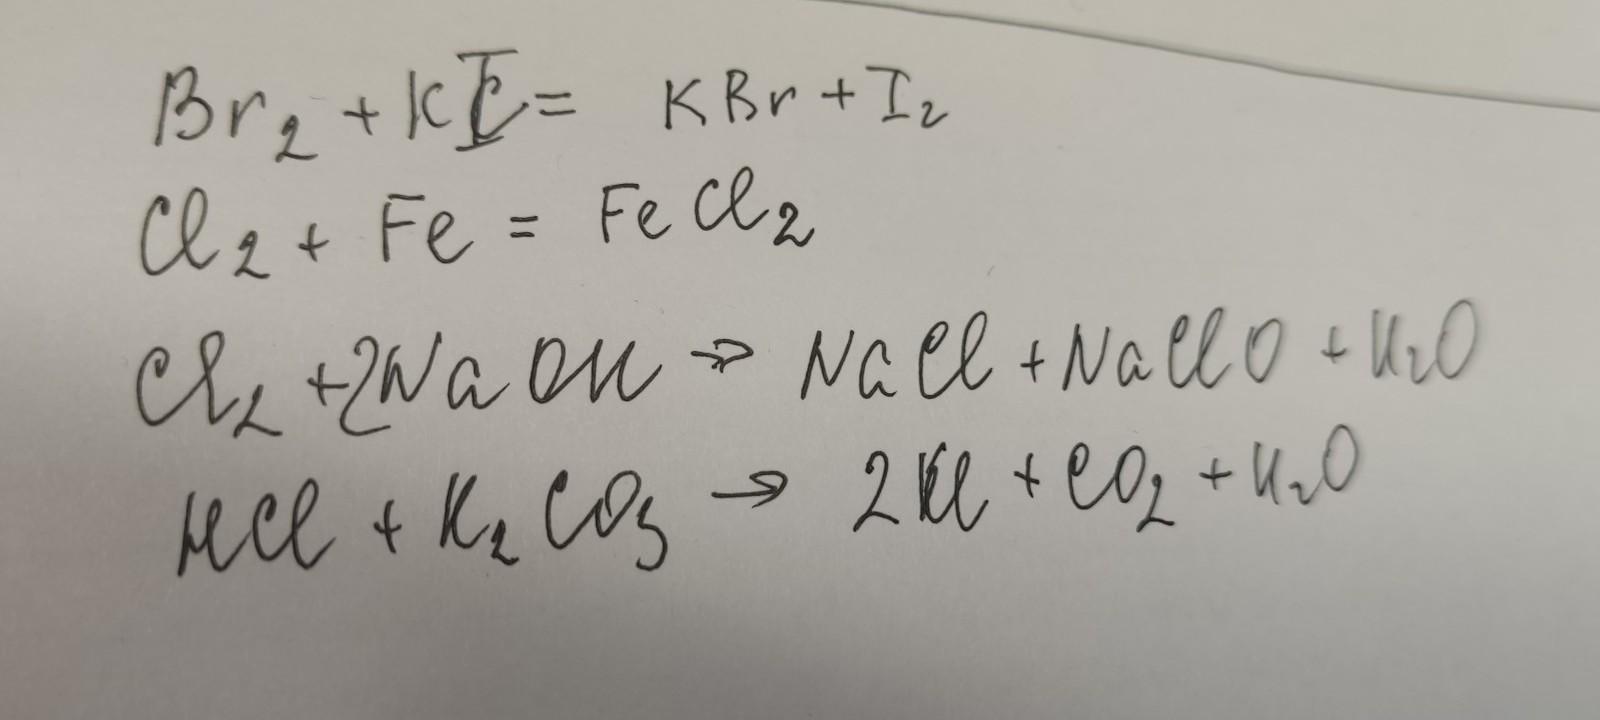 Br₂ + KI = KBr + I₂
Cl₂ + Fe = FeCl₂
Cl₂ + 2NaOH → NaCl + NaClO + H₂O
HCl + K₂CO₃ → 2KCl + CO₂ + H₂O